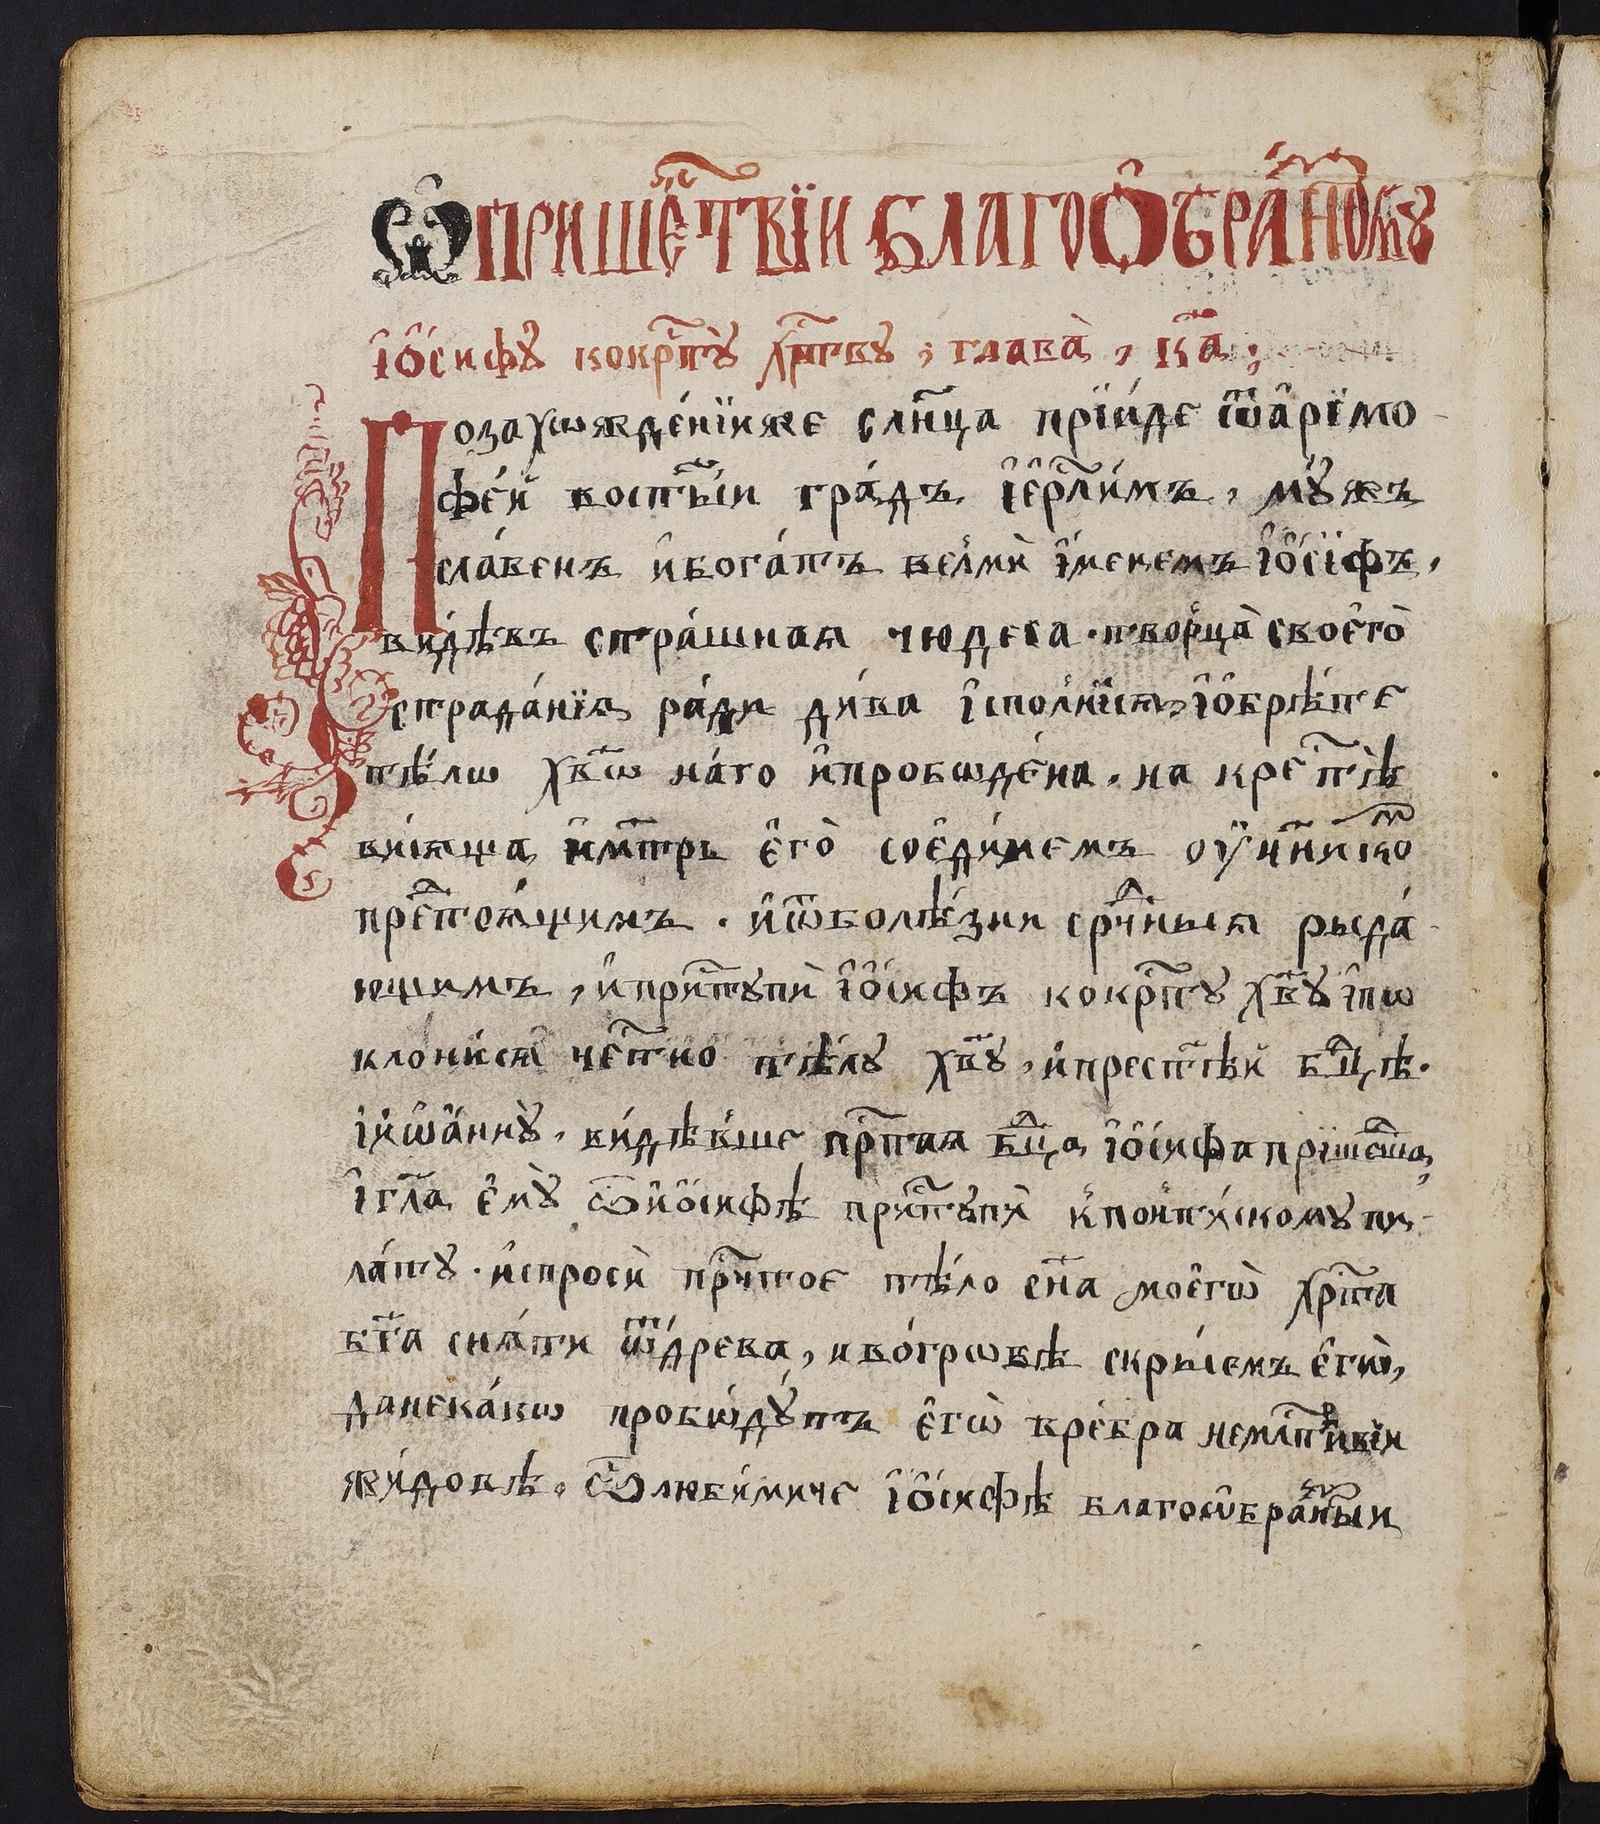 Ѡ҆ПРИШЕ́СТВЇИ БЛАГОО҆БРА́ННОМꙊ
І҆О҆́сифꙋ кокрⷭ҇тꙋ̀ хрⷭ҇твꙋ, глава̀, к҃а;
Позахѡжде́нїиже сл҃нца прїи́де ѿа҆рїмо-
фе́й вост҃ы́и гра́дъ і҆е҆рⷭ҇ли́мъ, мꙋ́жъ
сла́венъ и҆бога́тъ велмѝ и҆́менемъ і҆ѻ́сїфъ,
ви́дѣвъ стра́шнаѧ чюдеса. творца̀ своегѡ̀
страда́нїѧ ра́ди ди́ва и҆спо́лнисѧ, и҆ѡ҆брѣ́те
тѣ́лѡ хв҃ѡ на́го и҆пробѡде́на, на крⷭ҇тѣ̀
ви́сѧща, и҆мт҃рь е҆го̀ сое҆ди́нѣмъ ᲂу҆чн҃ико
пре́стоѧ́щимъ. и҆ѿболѣ́зни срⷣчныѧ рыда́-
ющимъ, и҆пристꙋпѝ і҆ѻ́сифъ кокрⷭ҇тꙋ хв҃ꙋ і҆пѡ
клони́сѧ че́стно тѣ́лꙋ хв҃ꙋ, и҆прест҃ѣй бцⷣѣ.
і҆и҆ѡа҆́ннꙋ̀, ви́дѣвше прⷭ҇таѧ бцⷣа і҆ѻ́сифа прїшеⷣша,
і҆гл҃а е҆мꙋ̀ ѽи҆ѻ́сифѣ пристꙋпѝ кпонті́йскомꙋ пи-
ла́тꙋ. и҆спросѝ прⷭ҇чтое тѣ́ло сн҃а моегѡ̀ хрⷭ҇та
бг҃а снѧ́ти ѿдре́ва, и҆во́грѡбѣ скры́емъ е҆гѡ̀,
данека́кѡ пробѡдꙋ́тъ е҆гѡ̀ вре́бра немлⷭ҇тивїи
жи́довѣ, ѽлюби́миче і҆ѻ́сифѣ благоѡ҆бра́нныи